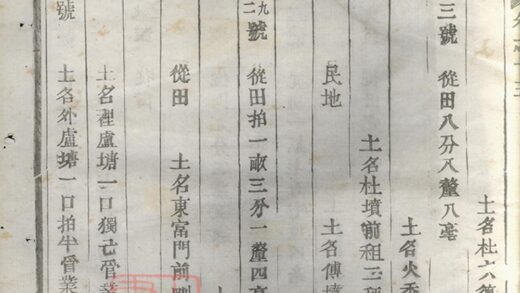 土名杜六德
三號 從田八分八釐八毫
土名火香
土名杜墳前租三秤
土名傅墳
民地
九二號 從田拍一畝三分一釐四毫
從田 土名東富門前
土名裡盧塘一口獨亡眘業
土名外盧塘一口拍半眘業
號